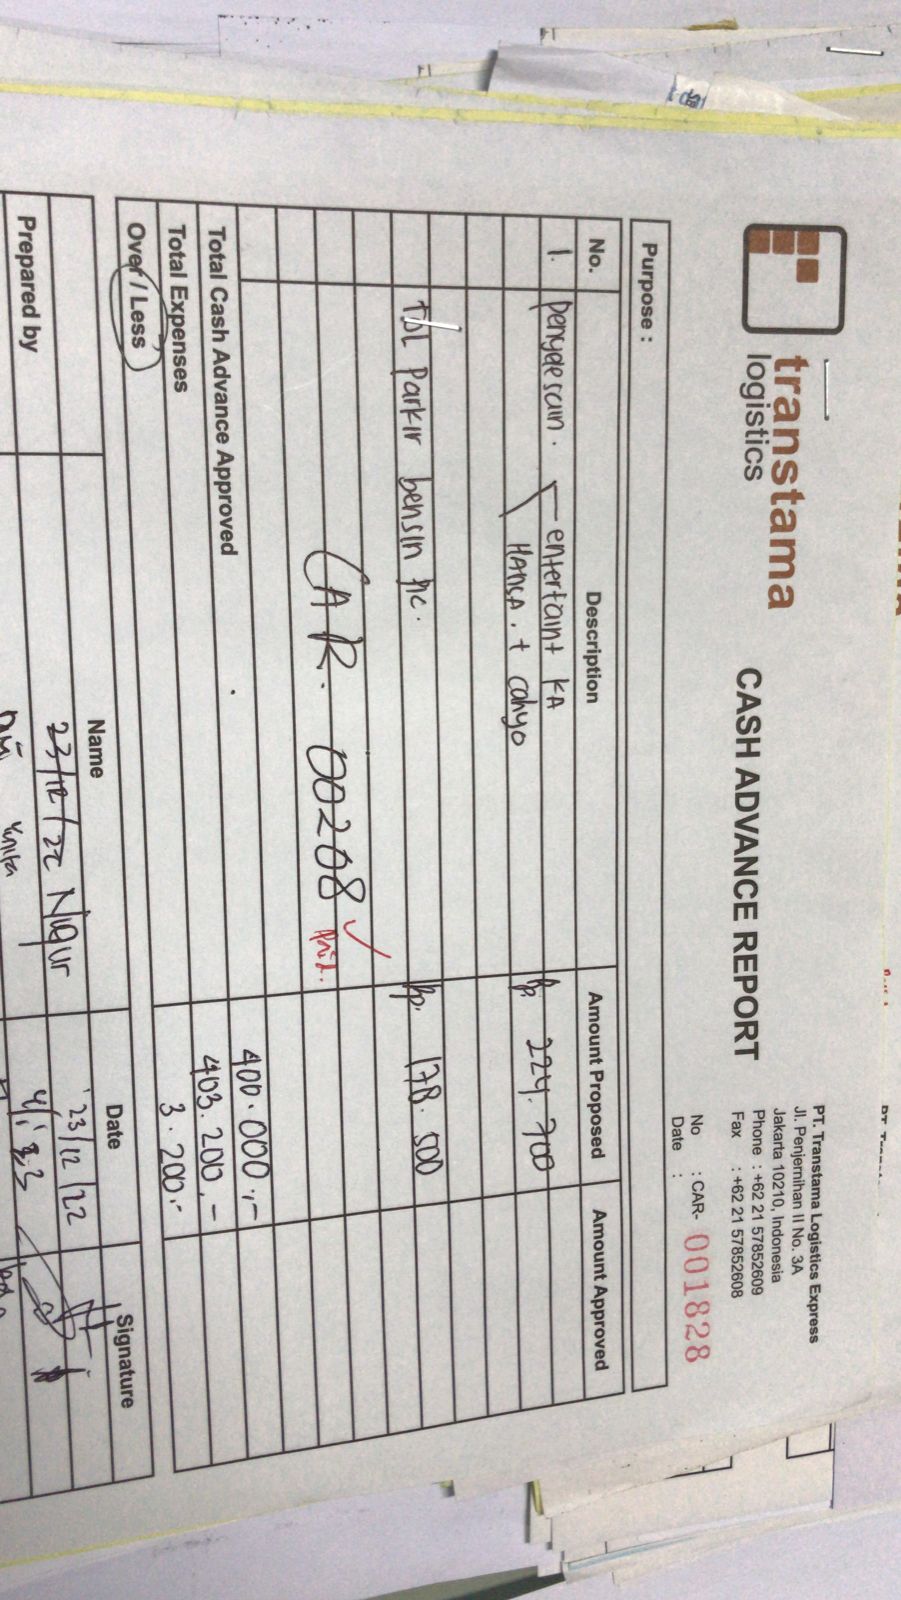 transtama
logistics
CASH ADVANCE REPORT
PT. Transtama Logistics Express
Jl. Penjernihan II No. 3A
Jakarta 10210, Indonesia
Phone : +62 21 57852609
Fax : +62 21 57852608
No : CAR- 001828
Date :
Purpose :
No. Description Amount Proposed Amount Approved
1. entertaint KA Rp. 224.700
HANGA. + cahyo
tol parkir bensin Rp. 178.500
CAR. 00208
Paid.
Total Cash Advance Approved 400.000,-
Total Expenses 403.200,-
Over / Less 3.200,-
Name Date Signature
23/12/22 23/12/22
Prepared by